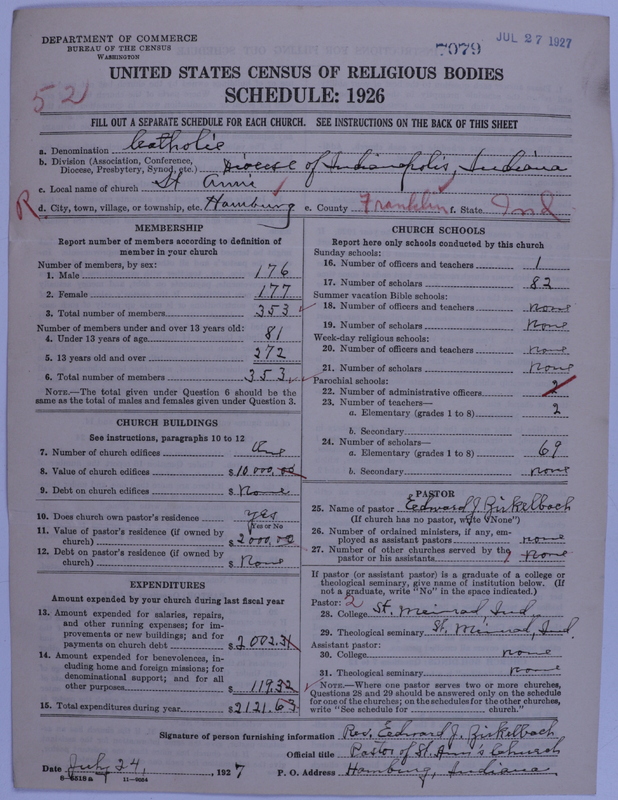 DEPARTMENT OF COMMERCE
BUREAU OF THE CENSUS
WASHINGTON
7979
JUL 27 1927
UNITED STATES CENSUS OF RELIGIOUS BODIES
SCHEDULE: 1926
52
FILL OUT A SEPARATE SCHEDULE FOR EACH CHURCH. SEE INSTRUCTIONS ON THE BACK OF THIS SHEET
a. Denomination Catholic
b. Division (Association, Conference, Diocese, Presbytery, Synod, etc.) Diocese of Indianapolis, Indiana
c. Local name of church St Anns
R d. City, town, village, or township, etc. Hamburg e. County Franklin f. State Ind
MEMBERSHIP
Report number of members according to definition of
member in your church
Number of members, by sex:
1. Male 176
2. Female 177
3. Total number of members 353
Number of members under and over 13 years old:
4. Under 13 years of age 81
5. 13 years old and over 272
6. Total number of members 353
NOTE.—The total given under Question 6 should be
same as the total of males and females given under Question 3.
CHURCH BUILDINGS
See instructions, paragraphs 10 to 12
7. Number of church edifices One
8. Value of church edifices $10,000.00
9. Debt on church edifices $None
10. Does church own pastor's residence yes
Yes or No
11. Value of pastor's residence (if owned by
church) $2000.00
12. Debt on pastor's residence (if owned by
church) $None
EXPENDITURES
Amount expended by your church during last fiscal year
13. Amount expended for salaries, repairs,
and other running expenses; for im-
provements or new buildings; and for
payments on church debt $2,002.31
14. Amount expended for benevolences, in-
cluding home and foreign missions; for
denominational support; and for all
other purposes $119.32
15. Total expenditures during year $2121.63
CHURCH SCHOOLS
Report here only schools conducted by this church
Sunday schools:
16. Number of officers and teachers 1
17. Number of scholars 82
Summer vacation Bible schools:
18. Number of officers and teachers none
19. Number of scholars none
Week-day religious schools:
20. Number of officers and teachers none
21. Number of scholars none
Parochial schools:
22. Number of administrative officers 2
23. Number of teachers—
a. Elementary (grades 1 to 8) 2
b. Secondary
24. Number of scholars—
a. Elementary (grades 1 to 8) 69
b. Secondary none
PASTOR
25. Name of pastor Edward J. Zirkelbach
(If church has no pastor, write "None")
26. Number of ordained ministers, if any, em-
ployed as assistant pastors none
27. Number of other churches served by the
pastor or his assistants none
If pastor (or assistant pastor) is a graduate of a college or
theological seminary, give name of institution below. (If
not a graduate, write "No" in the space indicated.)
Pastor: 2
28. College St. Meinrad, Ind.
29. Theological seminary St. Meinrad, Ind
Assistant pastor:
30. College none
31. Theological seminary none
NOTE.—Where one pastor serves two or more churches,
Questions 28 and 29 should be answered only on the schedule
for one of the churches; on the schedules for the other churches,
write "See schedule for church."
Signature of person furnishing information Rev. Edward J. Zirkelbach
Official title Pastor of St. Ann's Church
Date July 24, 1927 P. O. Address Hamburg, Indiana
8-6518a 11-9034